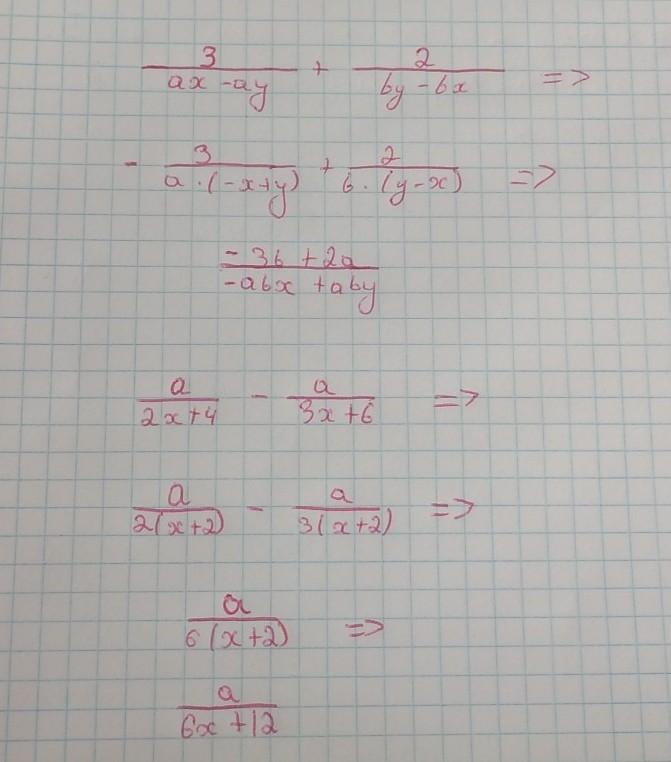 3/(ax - ay) + 2/(by - bx) =>
- 3/(a · (-x+y)) + 2/(b · (y-x)) =>
(-3b + 2a)/(-abx + aby)
a/(2x+4) - a/(3x+6) =>
a/(2(x+2)) - a/(3(x+2)) =>
a/(6(x+2)) =>
a/(6x+12)